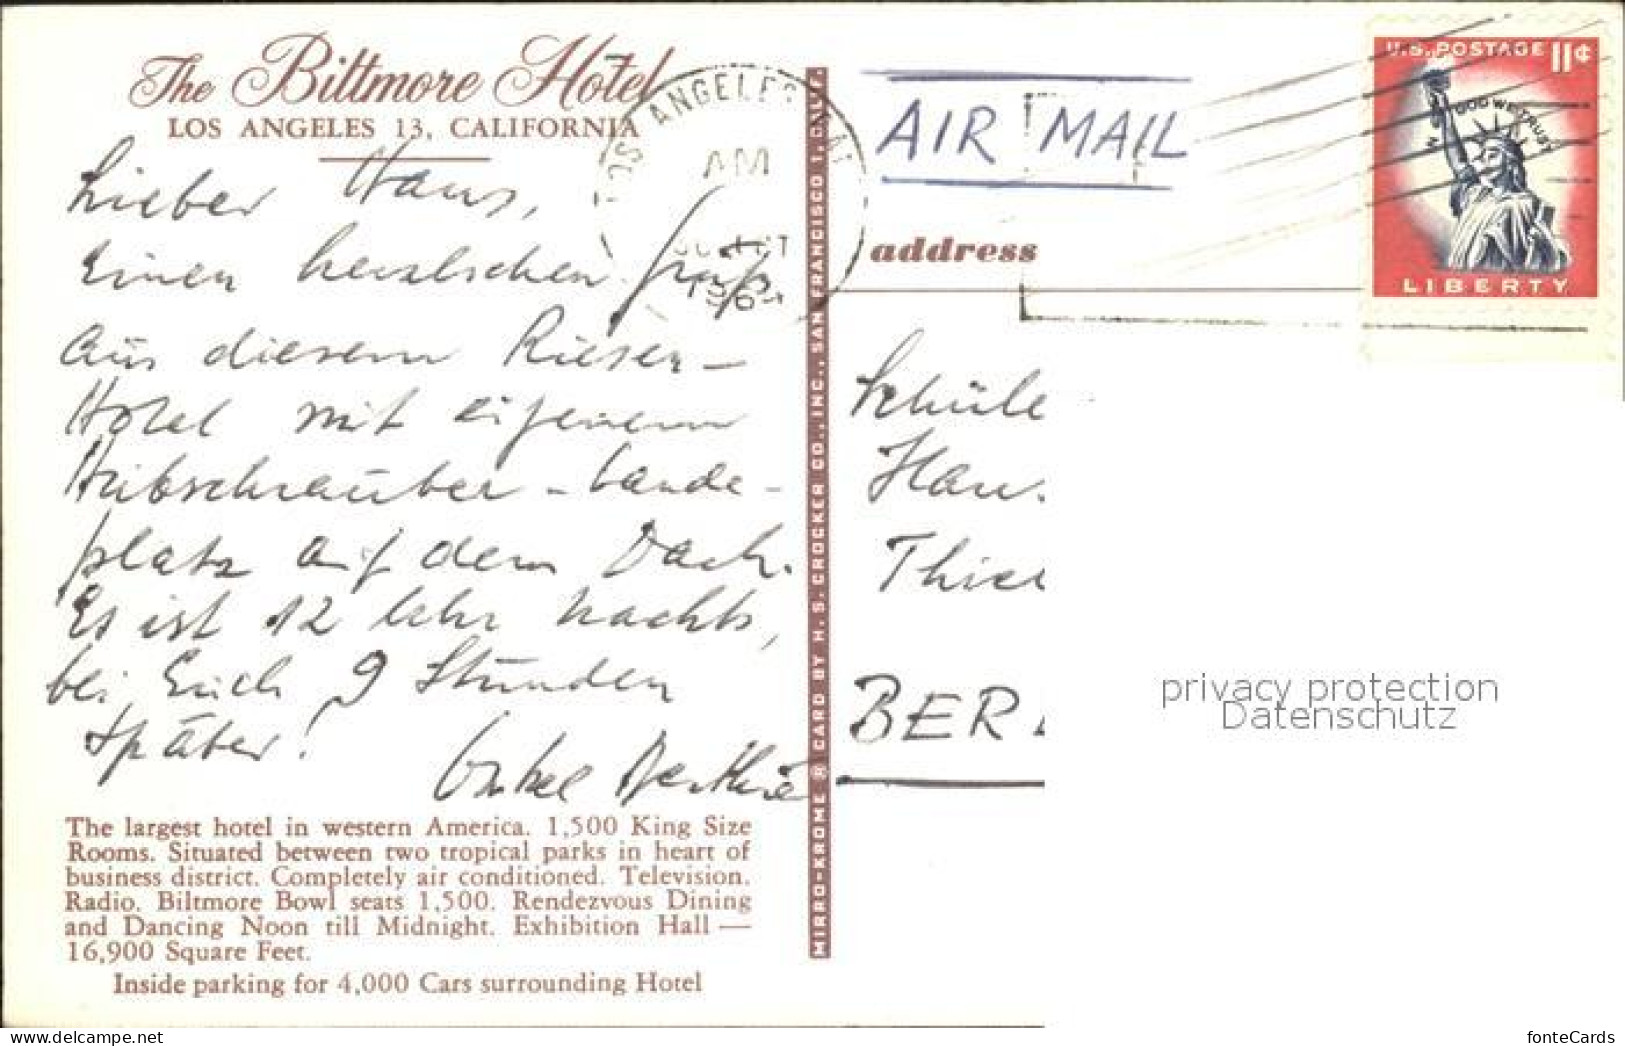 The Biltmore Hotel
LOS ANGELES 13, CALIFORNIA
Lieber Hans,
Einen herzlichen Gruß
aus diesem Riesen-
Hotel mit eigenem
Hubschrauber-Lande-
platz auf dem Dach.
Es ist 12 Uhr nachts,
bei Euch 9 Stunden
später!
Onkel
The largest hotel in western America. 1,500 King Size
Rooms. Situated between two tropical parks in heart of
business district. Completely air conditioned. Television.
Radio. Biltmore Bowl seats 1,500. Rendezvous Dining
and Dancing Noon till Midnight. Exhibition Hall —
16,900 Square Feet.
Inside parking for 4,000 Cars surrounding Hotel
LOS ANGELES, CAL
AM
MIRRO-KROME ® CARD BY H. S. CROCKER CO., INC., SAN FRANCISCO 1, CALIF.
AIR MAIL
U.S. POSTAGE 11¢
IN GOD WE TRUST
LIBERTY
address
Schüle
Han
Thie
BER
privacy protection
Datenschutz
www.delcampe.net
fonteCards